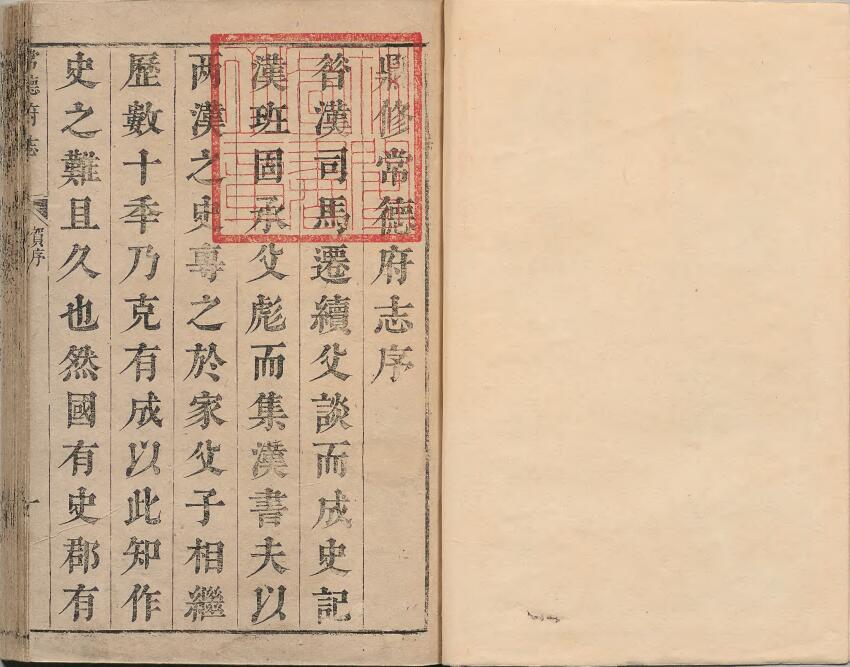 鼎修常德府志序
昝漢司馬遷續父談而成史記
漢班固承父彪而集漢書夫以
两漢之史專之於家父子相繼
歷數十年乃克有成以此知作
史之難且久也然國有史郡有
常德府志 賀序 一